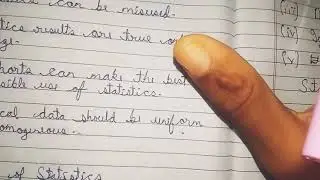 can be misused.
tics results are true on
ge.
can make the best
sible use of statistics.
cal data should be uniform
omogenous.
of Statistics
(iii)
(iv)
(x)